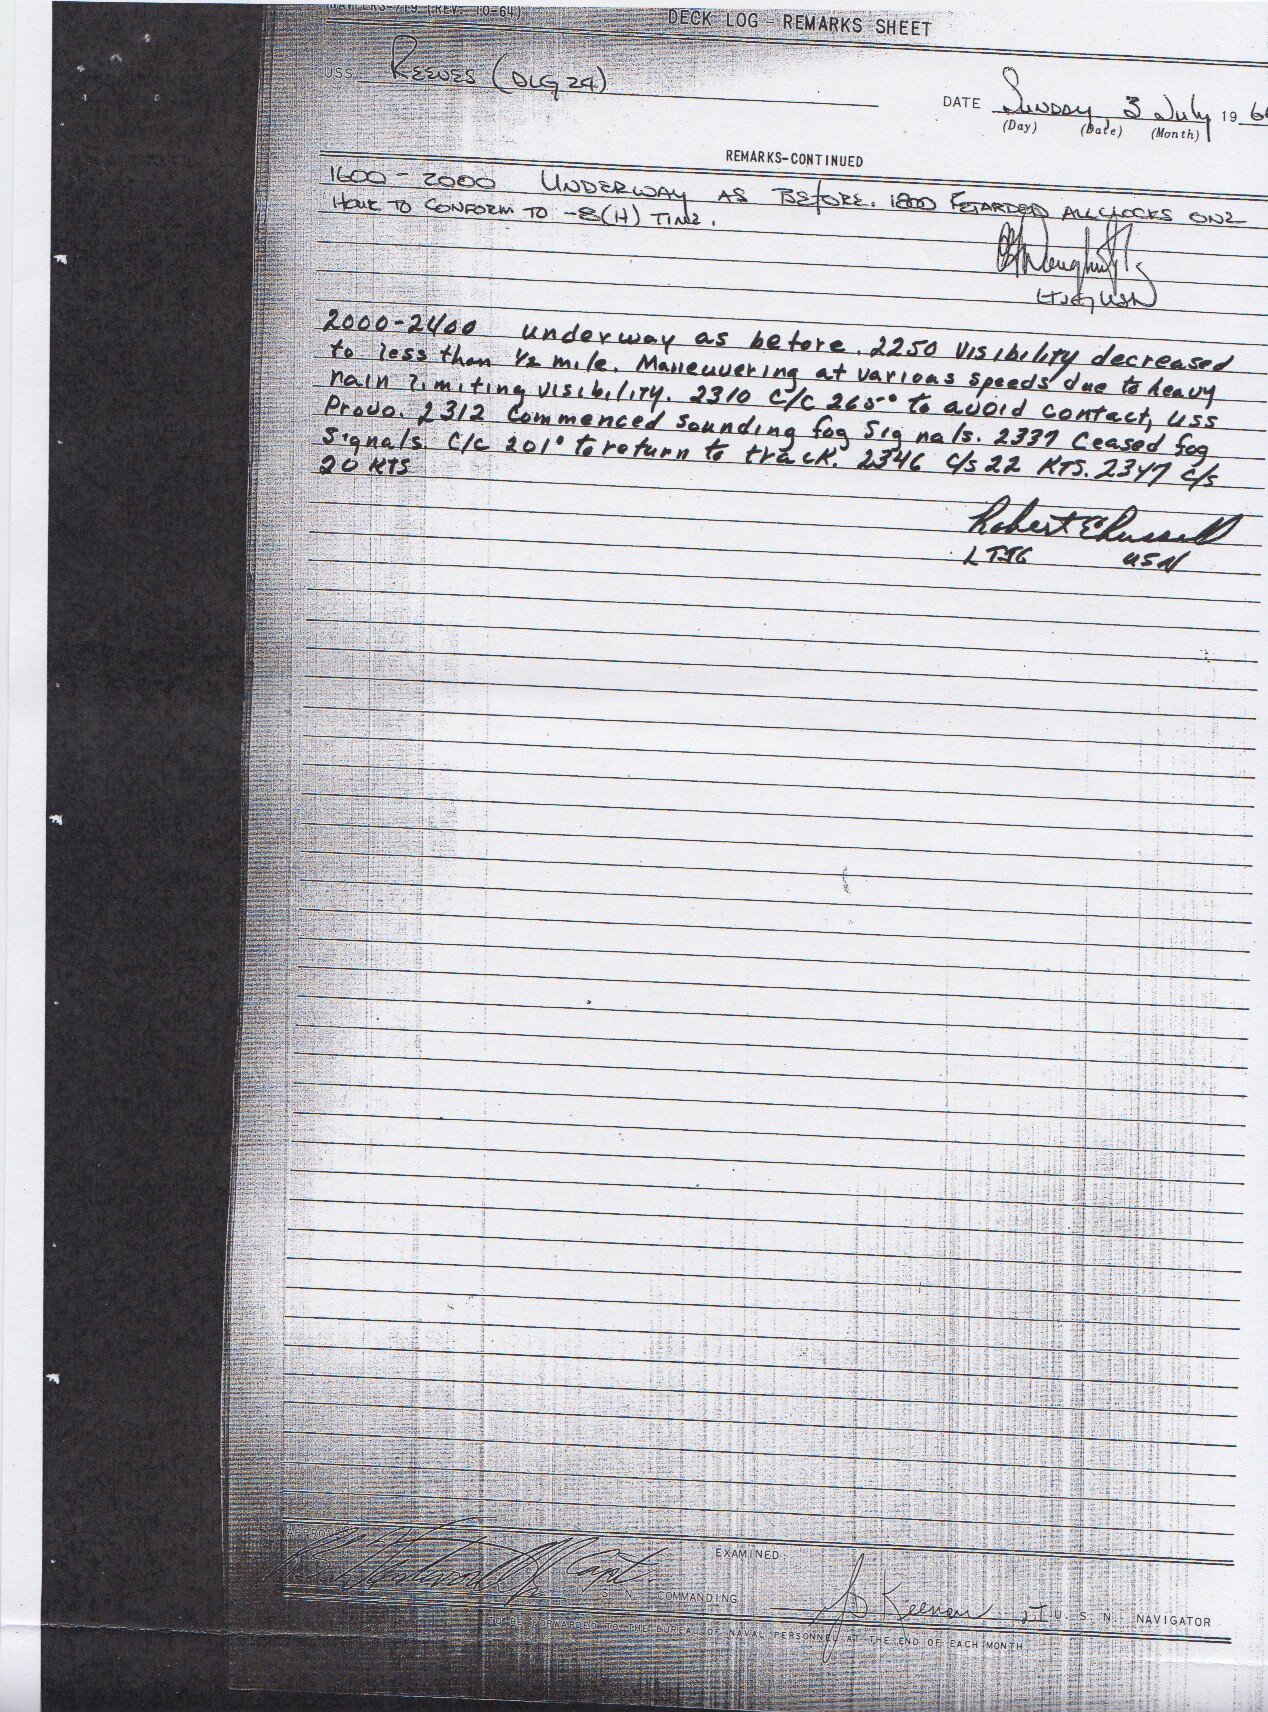 NAVPERS-719 (REV. 10-64)
DECK LOG - REMARKS SHEET
USS REEVES (DLG 24)
DATE Sunday, 3 July 19 66
(Day) (Date) (Month)
REMARKS-CONTINUED
1600-2000 UNDERWAY AS BEFORE. 1800 RETARDED ALL CLOCKS ONE
HOUR TO CONFORM TO -8(H) TIME.
LTJG USN
2000-2400 Underway as before. 2250 Visibility decreased
to less than 1/2 mile. Maneuvering at various speeds due to heavy
rain limiting visibility. 2310 C/C 265° to avoid contact, USS
Provo. 2312 Commenced sounding fog Signals. 2337 Ceased fog
Signals. C/C 201° to return to track. 2346 C/S 22 KTS. 2347 C/S
20 KTS
Robert E Russell
LTJG USN
APPROVED Capt.
EXAMINED
COMMANDING
Keenan LT U. S. N. NAVIGATOR
TO BE FORWARDED TO THE BUREAU OF NAVAL PERSONNEL AT THE END OF EACH MONTH